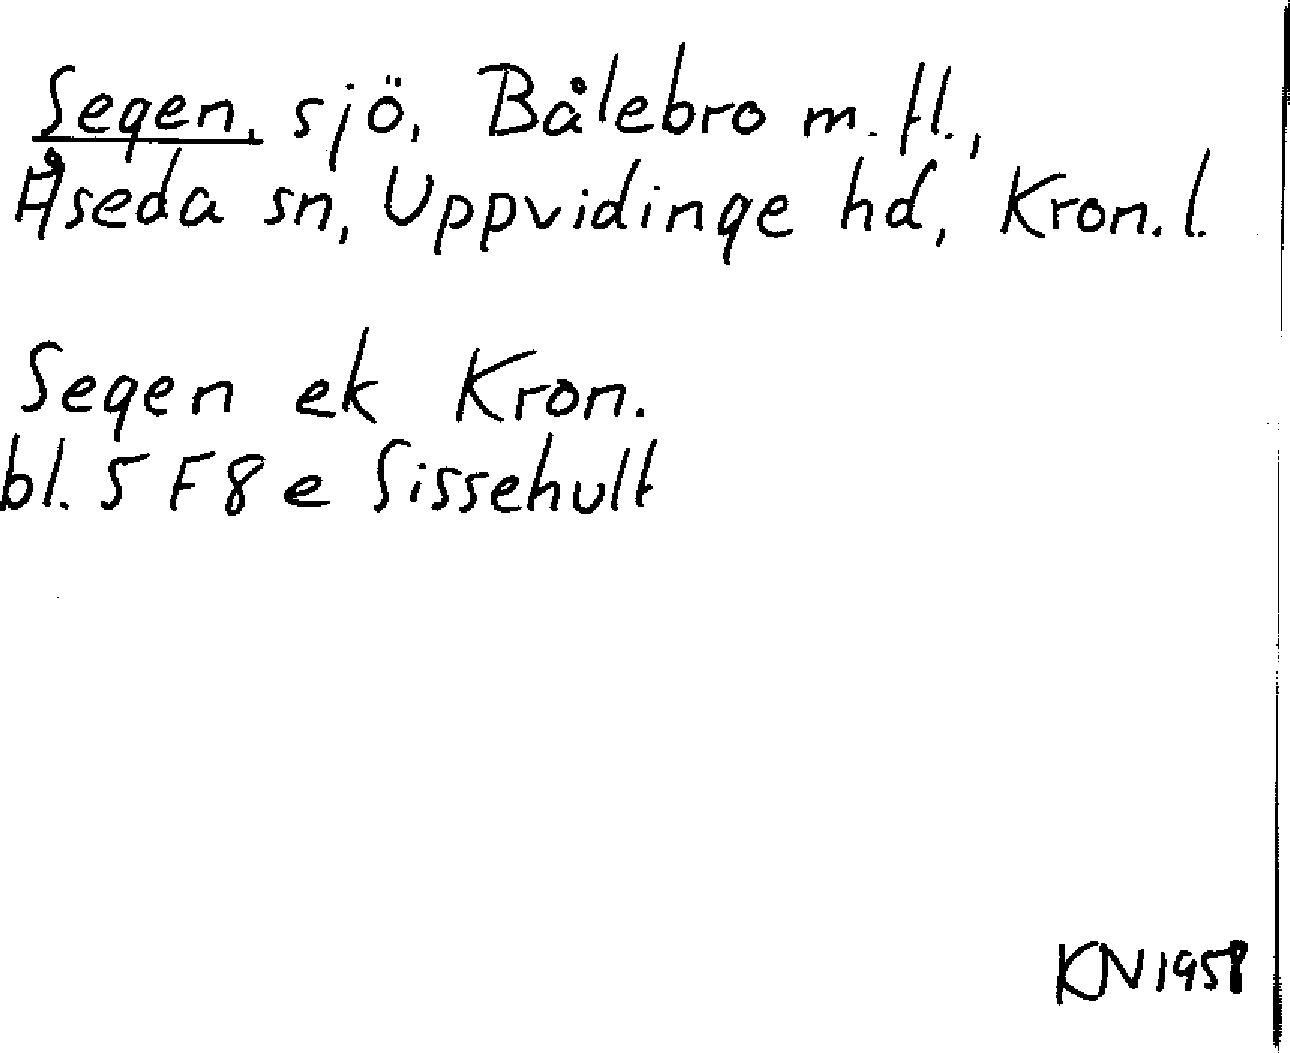 Segen, sjö, Bålebro m.fl.,
Åseda sn, Uppvidinge hd, Kron.l.
Segen ek Kron.
bl. 5 F 8 e Sissehult
KN 1958